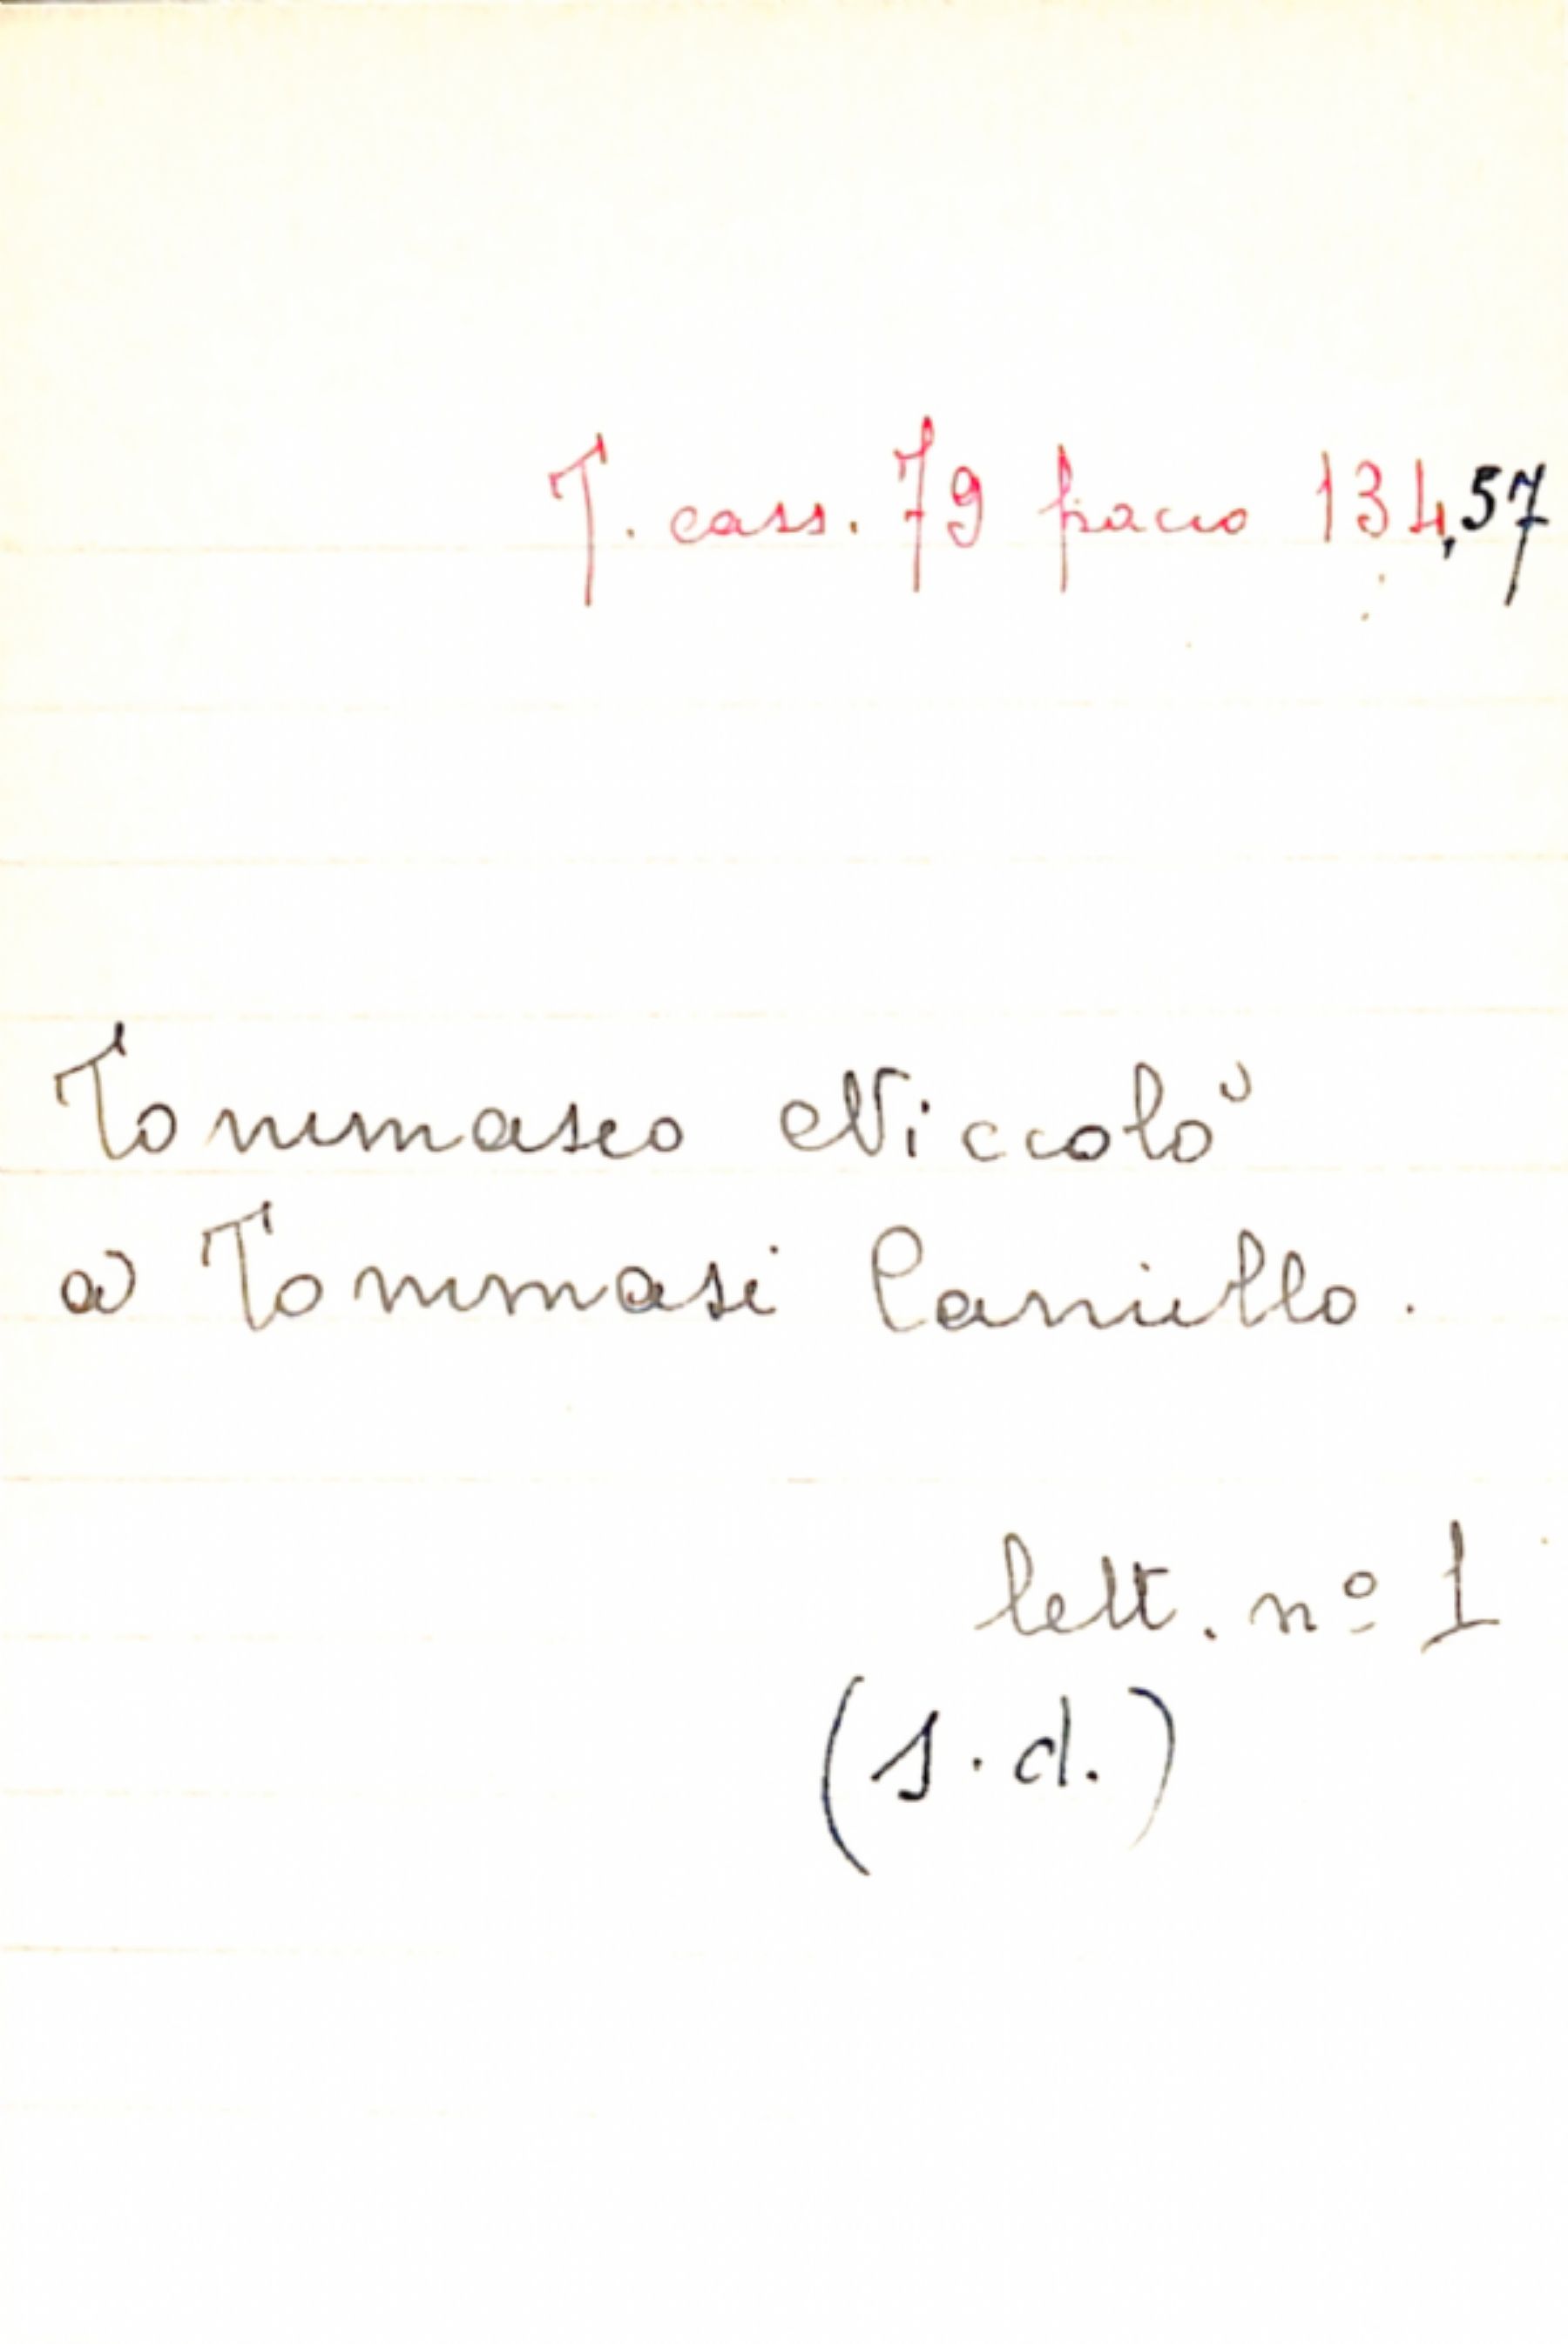 T. cass. 79 pacco 134,57
Tommaseo Niccolò
a Tommasi Caniello.
lett. nº 1
(s.d.)